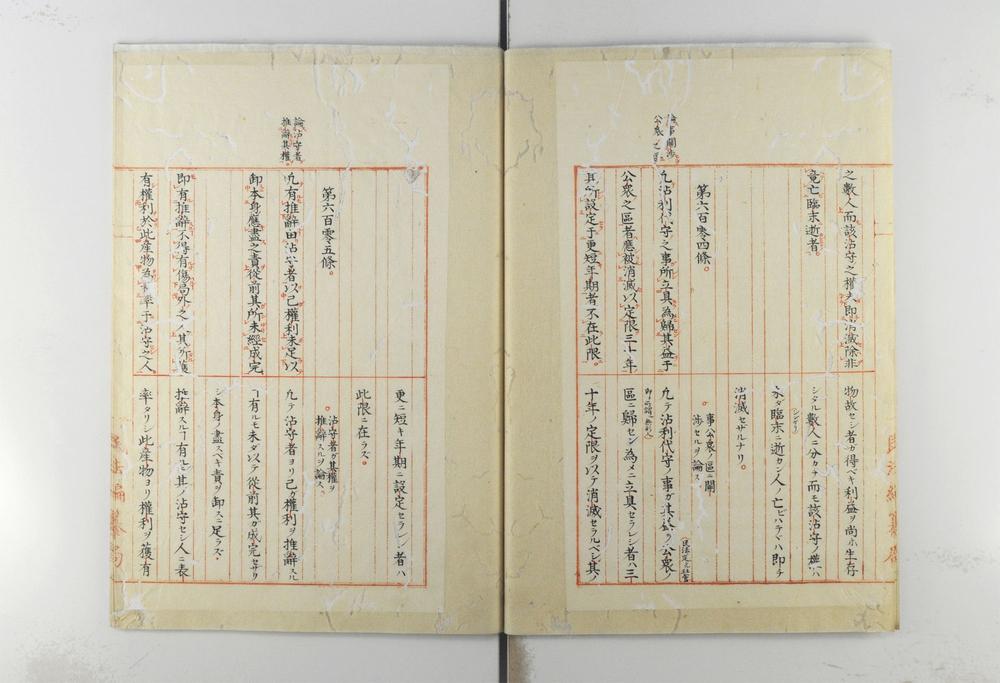 論事關渉
公衆之區
之數人而該沾守之權夫即消滅除非
竟亡臨末逝者。
第六百零四條。
凡沾利代守之事所立具為歸其益于
公衆之區者應被消滅以定限三十年
其所設定于更短年期者不在此限。
物故セシ者ガ得ベキ利益ヲ尚ホ生存
シタル數人ニ分カチ而モ該沾守ノ權ハ
永ダ臨末ニ逝カン人ノ亡ビハテヾハ即チ
消滅セサルナリ。
事公衆ノ區ニ關
渉セルヲ論ス
凡テ沾利代守ノ事ガ其益ヲ公衆ノ
區ニ歸セン為メニ立具セラレシ者ハ三
十年ノ定限ヲ以テ消滅セラルベシ其ノ
民法編纂局
論沾守者
推辭其權。
第六百零五條。
凡有推辭由沾守者以己權利未足以
卸本身應盡之責從前其所未經成完
即有推辭不得有傷局外之人其所獲
有權利於此産物為牽于沾守之人
更ニ短キ年期ニ設定セラレシ者ハ
此限ニ在ラズ。
沾守者ガ其權ヲ
推辭スルヲ論ス。
凡テ沾守者ヨリ己ガ權利ヲ推辭スル
有ルモ未ダ以テ從前其ガ成完セサリ
シ本身ノ盡スベキ責ヲ卸スニ足ラズ。
推辭スル有ルモ其ノ沾守セシ人ニ表
率タリシ此産物ヨリ權利ヲ獲有
民法編纂局